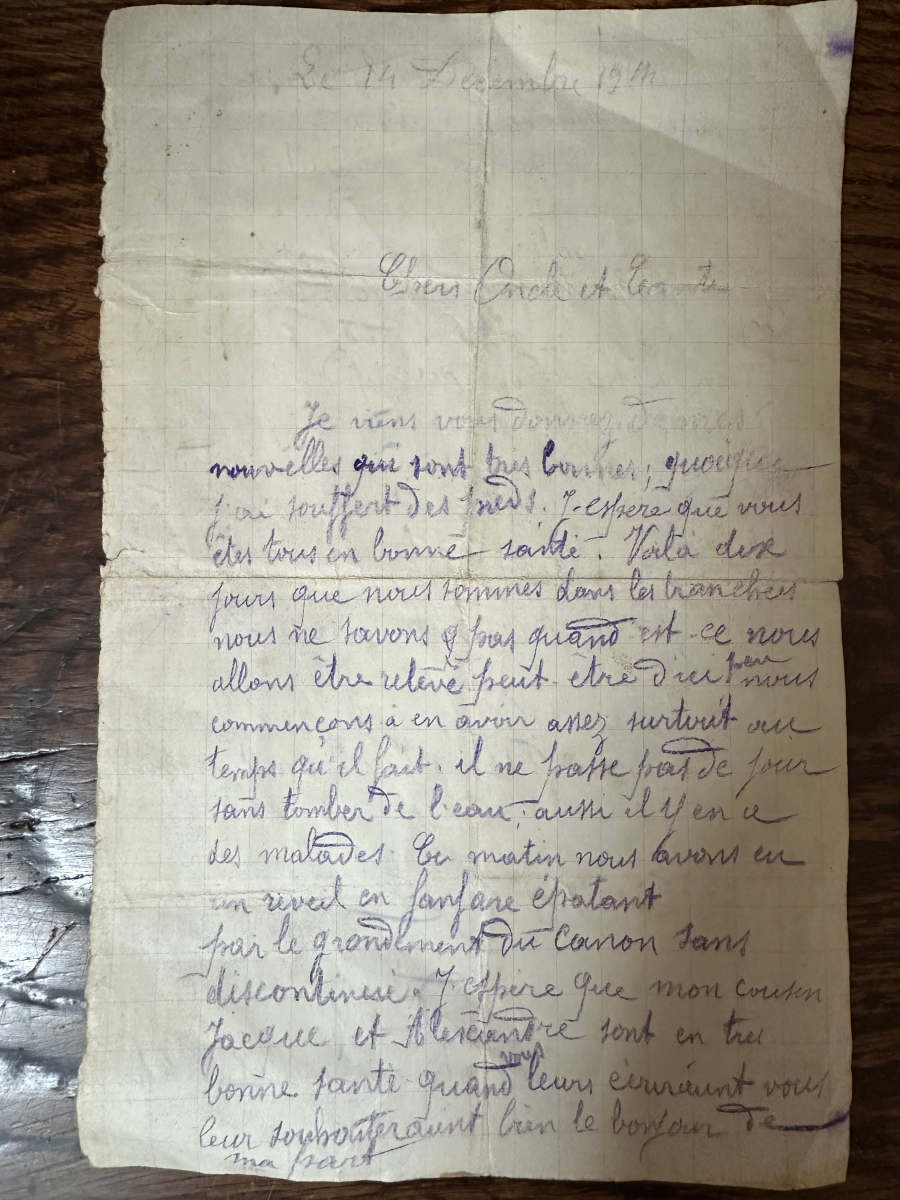 Le 14 Décembre 1914
Chers Oncle et Tante
Je viens vous donnez de mes
nouvelles qui sont tres bonnes, quoique
j'ai souffert des pieds. J'espère que vous
êtes tous en bonne santé. Voila dix
jours que nous sommes dans les tranchées
nous ne savons pas quand est-ce nous
allons être relevé peut-être d'ici peu nous
commençons à en avoir assez surtout au
temps qu'il fait. il ne passe pas de jour
sans tomber de l'eau, aussi il y en a
des malades. Ce matin nous avons eu
un reveil en fanfare épatant
par le grondement du canon sans
J'espère que mon cousin
Jacque et Alexandre sont en tres
bonne santé quand vous leurs vous
leur bien le bonjour de
ma part